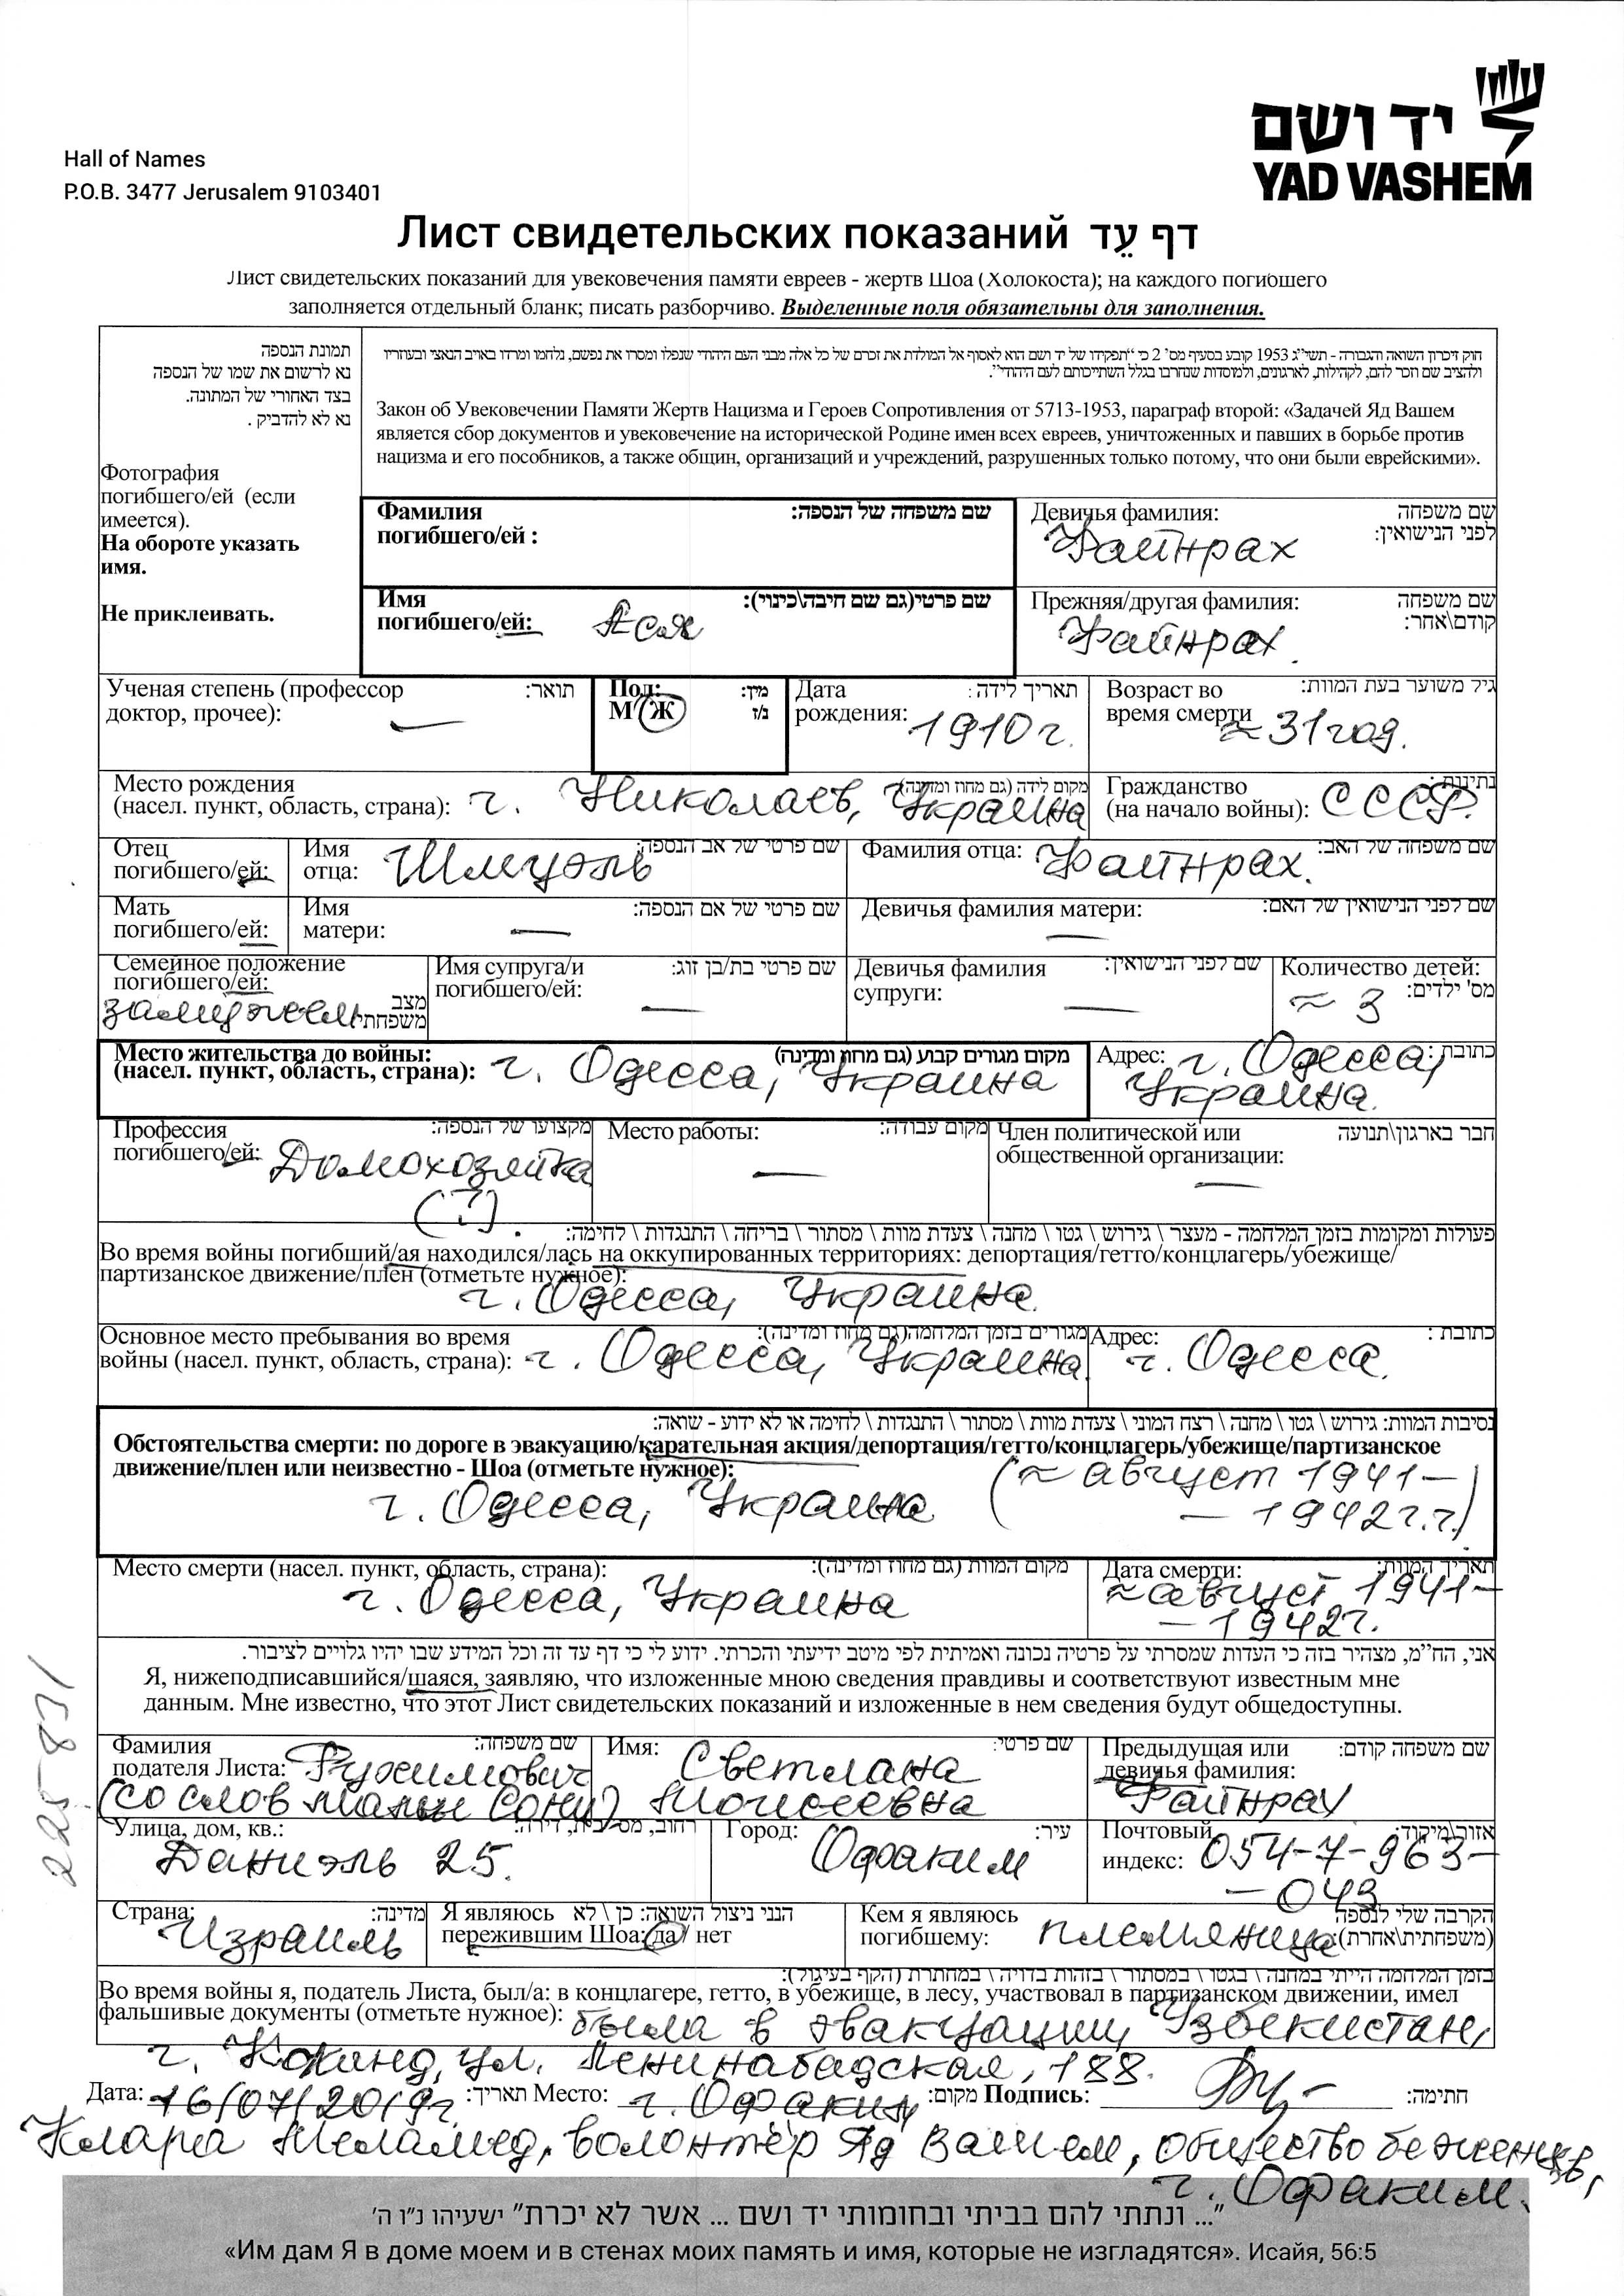 יד ושם
YAD VASHEM
Hall of Names
P.O.B. 3477 Jerusalem 9103401
Лист свидетельских показаний דף עֵד
Лист свидетельских показаний для увековечения памяти евреев - жертв Шоа (Холокоста); на каждого погибшего
заполняется отдельный бланк; писать разборчиво. Выделенные поля обязательны для заполнения.
תמונת הנספה
נא לרשום את שמו של הנספה
בצד האחורי של המתונה.
נא לא להדביק .
Фотография
погибшего/ей (если
имеется).
На обороте указать
имя.
Не приклеивать.
חוק זיכרון השואה והגבורה - תשי"ג 1953 קובע בסעיף מס' 2 כי "תפקידו של יד ושם הוא לאסוף אל המולדת את זכרם של כל אלה מבני העם היהודי שנפלו ומסרו את נפשם, נלחמו ומרדו באויב הנאצי ובעוזריו
ולהציב שם וזכר להם, לקהילות, לארגונים, ולמוסדות שנחרבו בגלל השתייכותם לעם היהודי".
Закон об Увековечении Памяти Жертв Нацизма и Героев Сопротивления от 5713-1953, параграф второй: «Задачей Яд Вашем
является сбор документов и увековечение на исторической Родине имен всех евреев, уничтоженных и павших в борьбе против
нацизма и его пособников, а также общин, организаций и учреждений, разрушенных только потому, что они были еврейскими».
Фамилия שם משפחה של הנספה:
погибшего/ей :
Девичья фамилия: שם משפחה
לפני הנישואין:
Файнрах
Имя שם פרטי(גם שם חיבה\כינוי):
погибшего/ей: Ася
Прежняя/другая фамилия: שם משפחה
קודם\אחר:
Файнрах.
Ученая степень (профессор תואר:
доктор, прочее): —
Пол: מין:
М Ж ז/נ
Дата תאריך לידה:
рождения: 1910г.
Возраст во גיל משוער בעת המוות:
время смерти ≈31год.
Место рождения מקום לידה (גם מחוז ומדינה)
(насел. пункт, область, страна): г. Николаев, Украина
Гражданство נתינות:
(на начало войны): СССР.
Отец Имя שם פרטי של אב הנספה:
погибшего/ей: отца: Шмуэль
Фамилия отца: Файнрах. שם משפחה של האב:
Мать Имя שם פרטי של אם הנספה:
погибшего/ей: матери: —
Девичья фамилия матери: — שם לפני הנישואין של האם:
Семейное положение
погибшего/ей:
замужем מצב
משפחתי
Имя супруга/и שם פרטי בת/בן זוג:
погибшего/ей: —
Девичья фамилия שם לפני הנישואין:
супруги: —
Количество детей:
מס' ילדים: ≈ 3
Место жительства до войны: מקום מגורים קבוע (גם מחוז ומדינה)
(насел. пункт, область, страна): г. Одесса, Украина
Адрес: г. Одесса, כתובת:
Украина.
Профессия מקצועו של הנספה:
погибшего/ей: Домохозяйка
(?)
Место работы: מקום עבודה:
—
Член политической или חבר בארגון\תנועה
общественной организации:
—
פעולות ומקומות בזמן המלחמה - מעצר \ גירוש \ גטו \ מחנה \ צעדת מוות \ מסתור \ בריחה \ התנגדות \ לחימה:
Во время войны погибший/ая находился/лась на оккупированных территориях: депортация/гетто/концлагерь/убежище/
партизанское движение/плен (отметьте нужное):
г. Одесса, Украина.
Основное место пребывания во время מגורים בזמן המלחמה(גם מחוז ומדינה):
войны (насел. пункт, область, страна): г. Одесса, Украина.
Адрес: כתובת :
г. Одесса.
נסיבות המוות: גירוש \ גטו \ מחנה \ רצח המוני \ צעדת מוות \ מסתור \ התנגדות \ לחימה או לא ידוע - שואה:
Обстоятельства смерти: по дороге в эвакуацию/карательная акция/депортация/гетто/концлагерь/убежище/партизанское
движение/плен или неизвестно - Шоа (отметьте нужное): (≈ август 1941–
г. Одесса, Украина – 1942г.г.)
Место смерти (насел. пункт, область, страна): מקום המוות (גם מחוז ומדינה):
г. Одесса, Украина
Дата смерти: תאריך המוות:
≈август 1941–
– 1942г.
אני, הח"מ, מצהיר בזה כי העדות שמסרתי על פרטיה נכונה ואמיתית לפי מיטב ידיעתי והכרתי. ידוע לי כי דף עד זה וכל המידע שבו יהיו גלויים לציבור.
Я, нижеподписавшийся/шаяся, заявляю, что изложенные мною сведения правдивы и соответствуют известным мне
данным. Мне известно, что этот Лист свидетельских показаний и изложенные в нем сведения будут общедоступны.
225-831
Фамилия שם משפחה:
подателя Листа: Рухимович
(со слов мамы Сони)
Имя: שם פרטי:
Светлана
Моисеевна
Предыдущая или שם משפחה קודם:
девичья фамилия:
Файнрах
Улица, дом, кв.: רחוב, מס' בית, דירה:
Даниэль 25.
Город: עיר:
Офаким
Почтовый אזור\מיקוד:
индекс: 054-7-963-
-043
Страна: מדינה:
Израиль
Я являюсь הנני ניצול השואה: כן \ לא
пережившим Шоа: да / нет
Кем я являюсь הקרבה שלי לנספה
погибшему: племянница (משפחתית\אחרת):
בזמן המלחמה הייתי במחנה \ בגטו \ במסתור \ בזהות בדויה \ במחתרת (הקף בעיגול):
Во время войны я, податель Листа, был/а: в концлагере, гетто, в убежище, в лесу, участвовал в партизанском движении, имел
фальшивые документы (отметьте нужное): была в эвакуации, Узбекистан,
г. Коканд, ул. Ленинабадская, 188.
Дата: 16/07/2019г. תאריך: Место: г. Офаким מקום: Подпись: חתימה:
Клара Меламед, волонтёр Яд Вашем, общество беженцев,
г. Офаким.
"... ונתתי להם בביתי ובחומותי יד ושם ... אשר לא יכרת" ישעיהו נ"ו ה'
«Им дам Я в доме моем и в стенах моих память и имя, которые не изгладятся». Исайя, 56:5